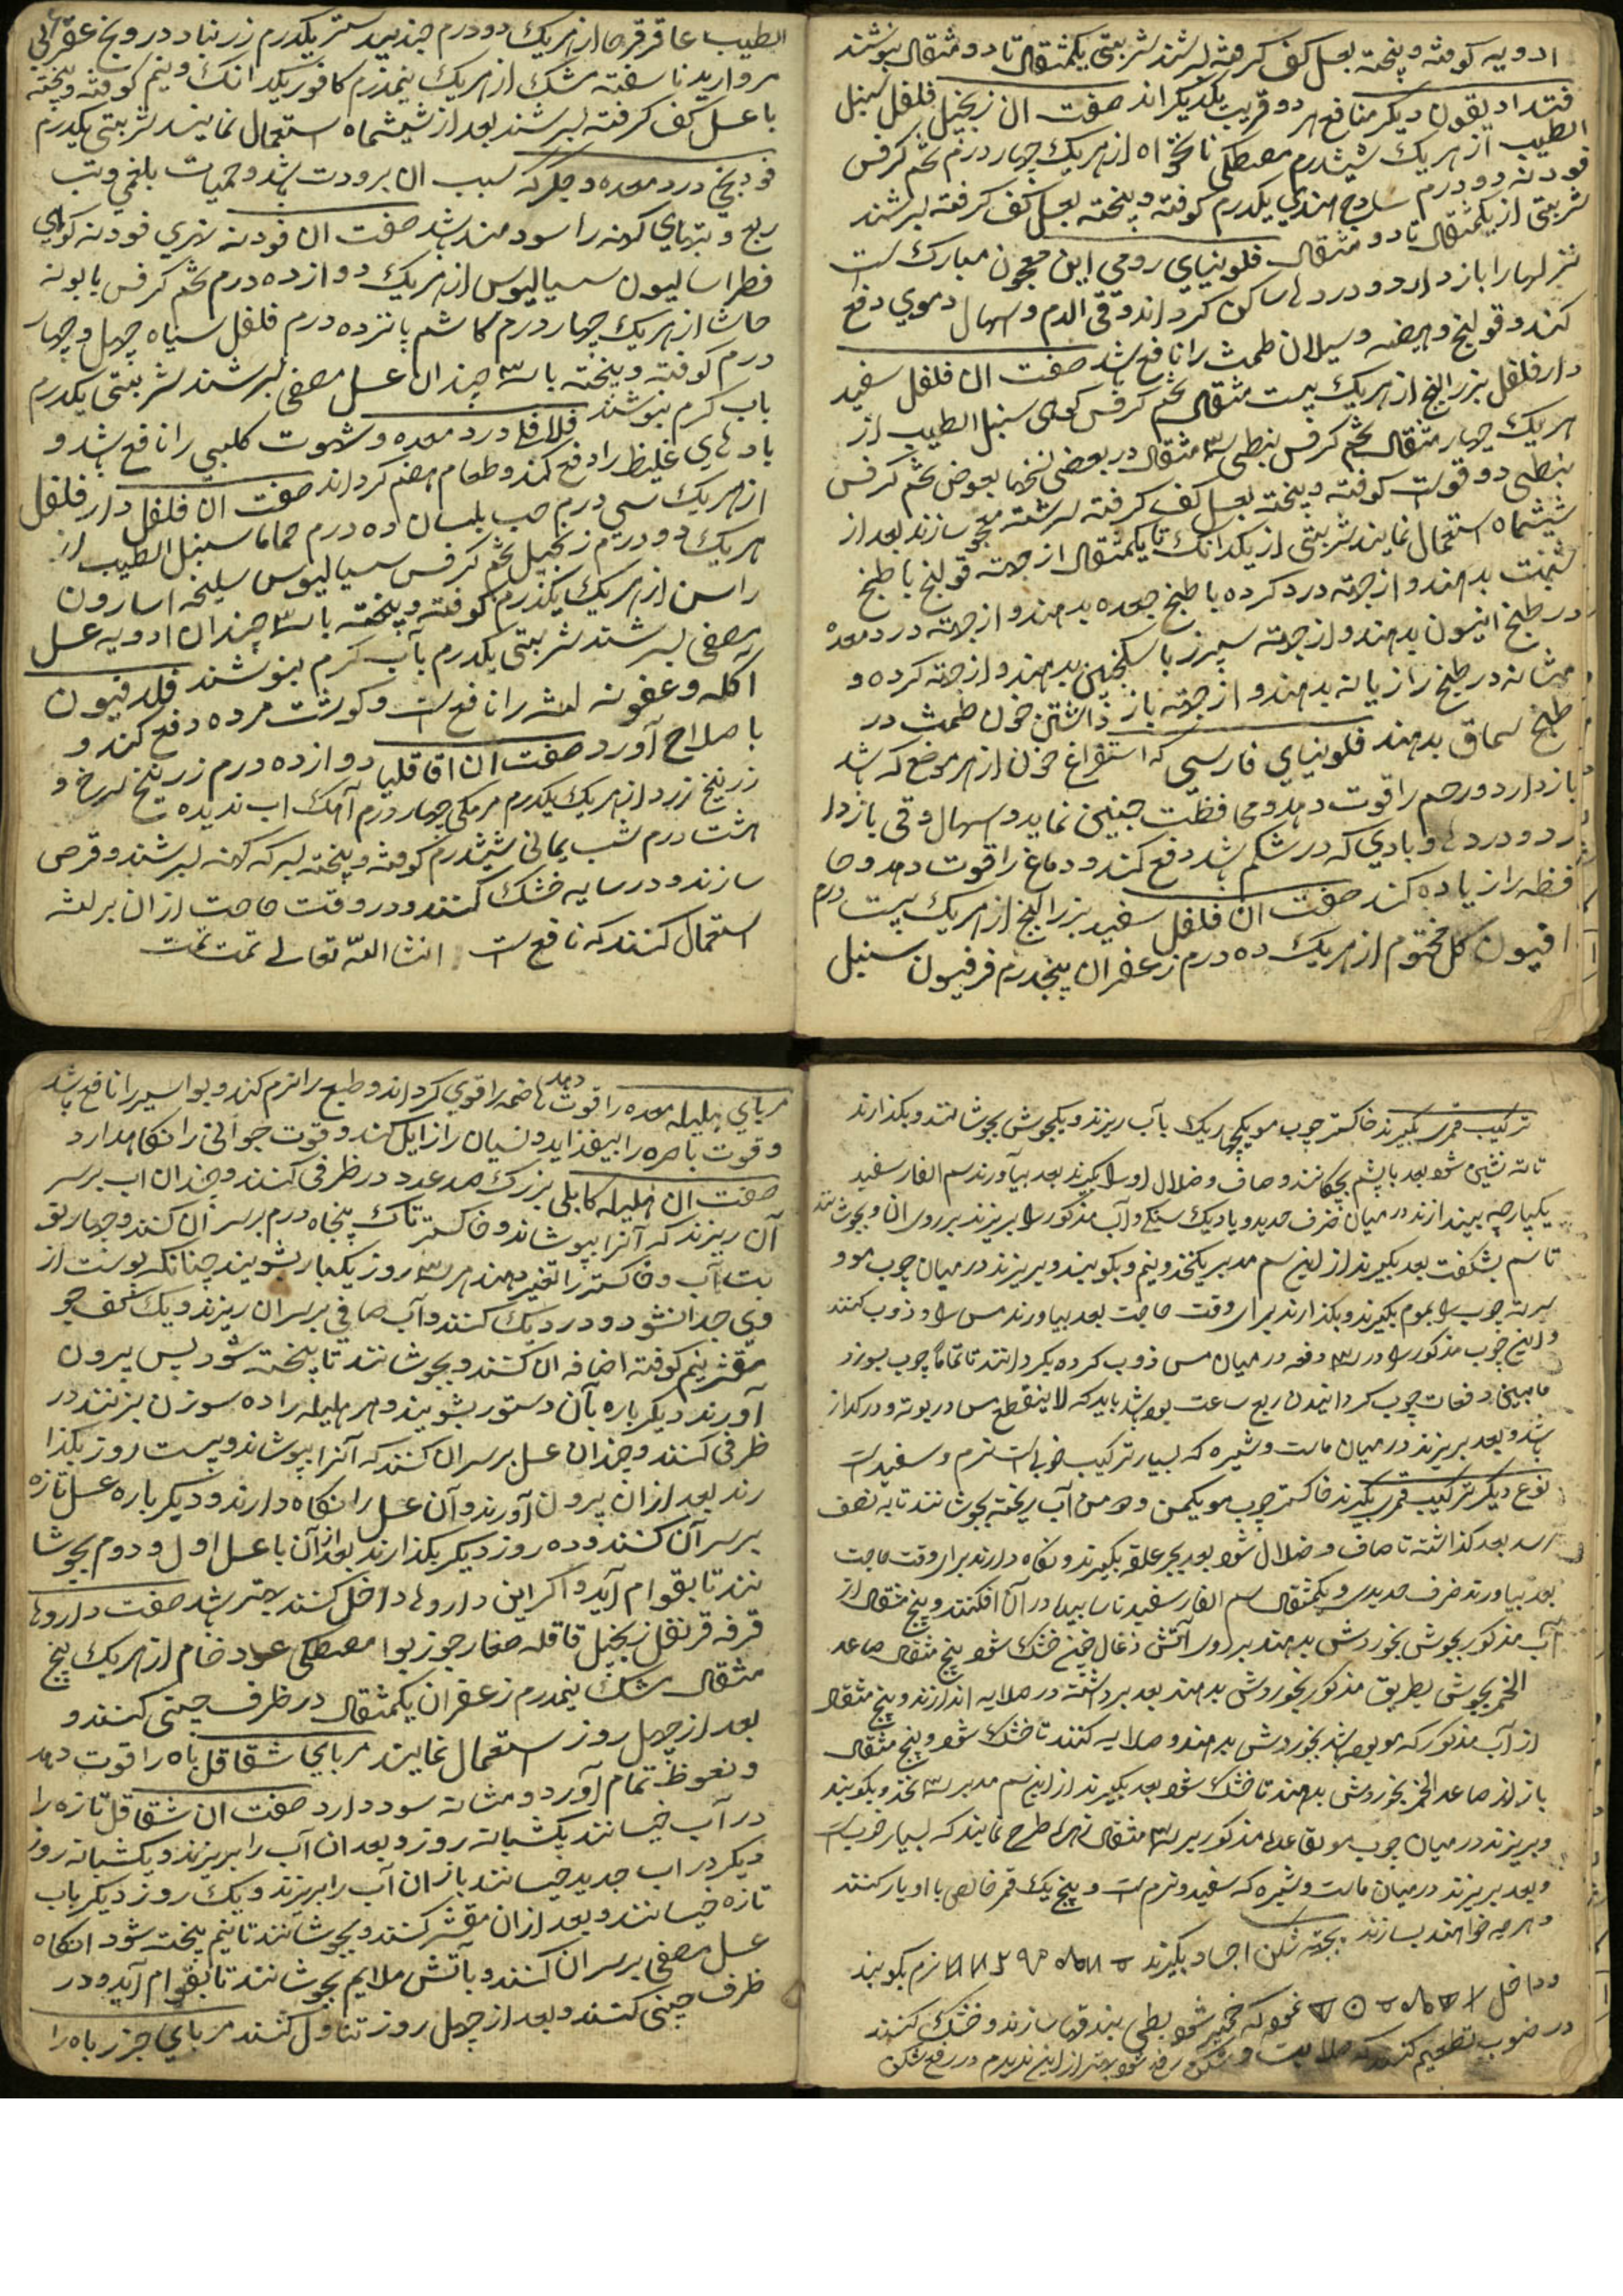 ادویه کوفته و پخته بعسل کف کرفته بسرشند شربتی یکمثقال تا دو مثقال بنوشند
فنداد یقون دیکر منافع هر دو قریب یکدیکراند صفت ان زنجبیل فلفل سنبل
الطیب از هریک شیشدرم مصطکی نانخواه از هریک چهار درم تخم کرفس
فودنه دو درم سادج هندی یکدرم کوفته و پخته بعسل کف کرفته بسرشند
شربتی از یکمثقال تا دو مثقال فلونیای رومی این معجون مبارک است
نزلها را باز دارد و دردها ساکن کرداند و قی الدم و اسهال دموی دفع
کند و قولنج و هیضه و سیلان طمث را نافع باشد صفت ان فلفل سفید
دارفلفل بزر البنج از هریک بیست مثقال تخم کرفس کوهی سنبل الطیب از
هریک چهار مثقال تخم کرفس نبطی سه مثقال در بعضی نسخها بعوض تخم کرفس
نبطی دوقوست کوفته و پخته بعسل کف کرفته سرشته معجون سازند بعد از
ششماه استعمال نمایند شربتی از یکدانک تا یکمثقال از جهة قولنج با طبخ
شبت بدهند و از جهة درد کرده با طبخ جعده بدهند و از جهة درد معده
در طبخ انیسون بدهند و از جهة سپرز با سکنجبین بدهند و از جهة کرده و
مثانه در طبخ رازیانه بدهند و از جهة باز داشتن خون طمث در
طبخ سماق بدهند فلونیای فارسی که استفراغ خون از هر موضع که باشد
باز دارد و رحم را قوت دهد و محافظت جنین نماید و اسهال و قی باز دا
رد و دردها و بادی که در شکم باشد دفع کند و دماغ را قوت دهد و حا
فظه را زیاده کند صفت ان فلفل سفید بزر البنج از هریک بیست درم
افیون کل مختوم از هریک ده درم زعفران پنجدرم فرفیون سنبل
الطیب عاقرقرحا از هریک دو درم جندبیدستر یکدرم زرنباد درونج عقربی
مروارید ناسفته مشک از هریک نیمدرم کافور یکدانک و نیم کوفته و پخته
با عسل کف کرفته بسرشند بعد از شیشماه استعمال نمایند شربتی یکدرم
فودنجی درد معده و جکر که سبب ان برودت باشد و حمیات بلغمی و تب
ربع و تبهای کهنه را سودمند باشد صفت ان فودنه نهری فودنه کوهی
فطراسالیون سیسالیوس از هریک دوازده درم تخم کرفس بابونه
حاشا از هریک چهار درم کاشم پانزده درم فلفل سیاه چهل و چهار
درم کوفته و پخته با سه چندان عسل مصفی بسرشند شربتی یکدرم
باب کرم بنوشند فلافلی درد معده و شهوت کلبی را نافع باشد و
بادهای غلیظ را دفع کند و طعام هضم کرداند صفت ان فلفل دارفلفل
از هریک سی درم حب بلسان ده درم حماما سنبل الطیب از
هریک دو درم زنجبیل تخم کرفس سیسالیوس سلیخه اسارون
راسن از هریک یکدرم کوفته و پخته با سه چندان ادویه عسل
مصفی بسرشند شربتی یکدرم بآب کرم بنوشند فلدفیون
اکله و عفونه لثه را نافع است و کوشت مرده دفع کند و
باصلاح آورد صفت ان اقاقلیا دوازده درم زرنیخ سرخ و
زرنیخ زرد از هریک یکدرم مرمکی چهار درم آهک اب ندیده
هشت درم شب یمانی شیشدرم کوفته و پخته بسرکه کهنه بسرشند و قرص
سازند و در سایه خشک کنند و در وقت حاجت از ان بر لثه
استعمال کنند که نافع است انشا الله تعالی تمت تمت
ترکیب قمر بکیرند خاکستر چوب مو یکچهاریک با آب ریزند و یکجوش بجوشانند و بکذارند
تا ته نشین شود بعد با پشم بچکانند و صاف و ضلال او را بکیرند بعد بیآورند سم الفار سفید
یکپارچه بیندازند در میان ظرف حدید و یا دیک سنکی و آب مذکور را بریزند بر روی ان و بجوشانند
تا سم بشکفت بعد بکیرند از این سم مدبر یکنخود و نیم و بکوبند و بریزند در میان چوب مو و
سر ته چوب را بموم بکیرند و بکذارند برای وقت حاجت بعد بیاورند مس را و ذوب کنند
و این چوب مذکور را در سه دفعه در میان مس ذوب کرده بکردانند تا تماماً چوب بسوزد
مابین دفعات چوب کردانیدن ربع ساعت بوده باشد باید که لاینقطع مس در بوته و در کداز
باشد و بعد بریزند در میان ماست و شیره که بسیار ترکیب خوبی است نرم و سفید است
نوع دیکر ترکیب قمر بکیرند خاکستر چوب مو یکمن و ده من آب ریخته بجوشانند تا به نصف
رسد بعد کذاشته تا صاف و ضلال شود بعد بجر علقه بکیرند و نکاه دارند برای وقت حاجت
بعد بیاورند ظرف حدیدی و یکمثقال سم الفار سفید ناسابیده در آن افکنند و پنج مثقال از
آب مذکور بجوش بخوردش بدهند بر روی آتش ذغال چنین خشک شود پنج مثقال صاعد
الخمر بجوشی بطریق مذکور بخوردش بدهند بعد برداشته در صلایه اندازند و پنج مثقال
از آب مذکور که مو بوده باشد بخوردش بدهند و صلایه کنند تا خشک شود و پنج مثقال
باز از صاعد الخمر بخوردش بدهند تا خشک شود بعد بکیرند از این سم مدبر سه نخود بکوبند
و بریزند در میان چوب مو بقاعده مذکور بر سه مثقال نهاده طرح نمایند که بسیار خوب است
و بعد بریزند در میان ماست و شیره که سفید و نرم است و پنج یک قمر خالص با او یار کنند
و هرچه خواهند بسازند بجهة شکن اجساد بکیرند نرم بکوبند
و داخل نموده که خمیر شود بطی بندقها سازند و خشک کنند
در ضوب تطعیم کنند که صلابیت و شکن رفع شود بهتر از این ندیدم در رفع شکن
مربای هلیله معده را قوت دهد هاضمه را قوی کرداند و طبع را نرم کند و بواسیر را نافع باشد
و قوت باصره را بیفزاید و نسیان را زایل کند و قوت جوانی را نکاهدارد
صفت ان هلیله کابلی بزرک صد عدد در ظرفی کنند و چندان اب بر سر
آن ریزند که آنرا بپوشاند و خاکستر تاک پنجاه درم بر سر آن کنند و چهار نو
بت آب و خاکستر را تغیر دهند هر سه روز یکبار بشویند چنانکه پوست از
وی جدا نشود و در دیک کنند و آب صافی بر سر ان ریزند و یک کف جو
مقشر نیم کوفته اضافه ان کنند و بجوشانند تا پخته شود پس بیرون
آورند دیکر باره بآن دستور بشویند و هر هلیله را ده سوزن بزنند در
ظرفی کنند و چندان عسل بر سر ان کنند که آنرا بپوشاند و بیست روز بکذا
رند بعد از ان بیرون آورند و آن عسل را نکاه دارند و دیکر باره عسل تازه
بر سر آن کنند و ده روز دیکر بکذارند بعد از آن با عسل اول و دوم بجوشا
نند تا بقوام آید و اکر این داروها داخل کنند بهتر باشد صفت داروها
قرفه قرنفل زنجبیل قاقله صغار جوزبوا مصطکی عود خام از هریک پنج
مثقال مشک نیمدرم زعفران یکمثقال در ظرف چینی کنند و
بعد از چهل روز استعمال نمایند مربای شقاقل باه را قوت دهد
و نعوظ تمام آورد و مثانه سود دارد صفت ان شقاقل تازه را
در آب خیسانند یکشبانه روز و بعد ان آب را بریزند و یکشبانه روز
دیکر در اب جدید خیسانند باز ان آب را بریزند و یک روز دیکر باب
تازه خیسانند و بعد از ان مقشر کنند و بجوشانند تا نیم پخت شود انکاه
عسل مصفی بر سر ان کنند و بآتش ملایم بجوشانند تا بقوام آید و در
ظرف چینی کنند و بعد از چهل روز تناول کنند مربای جزر باه را